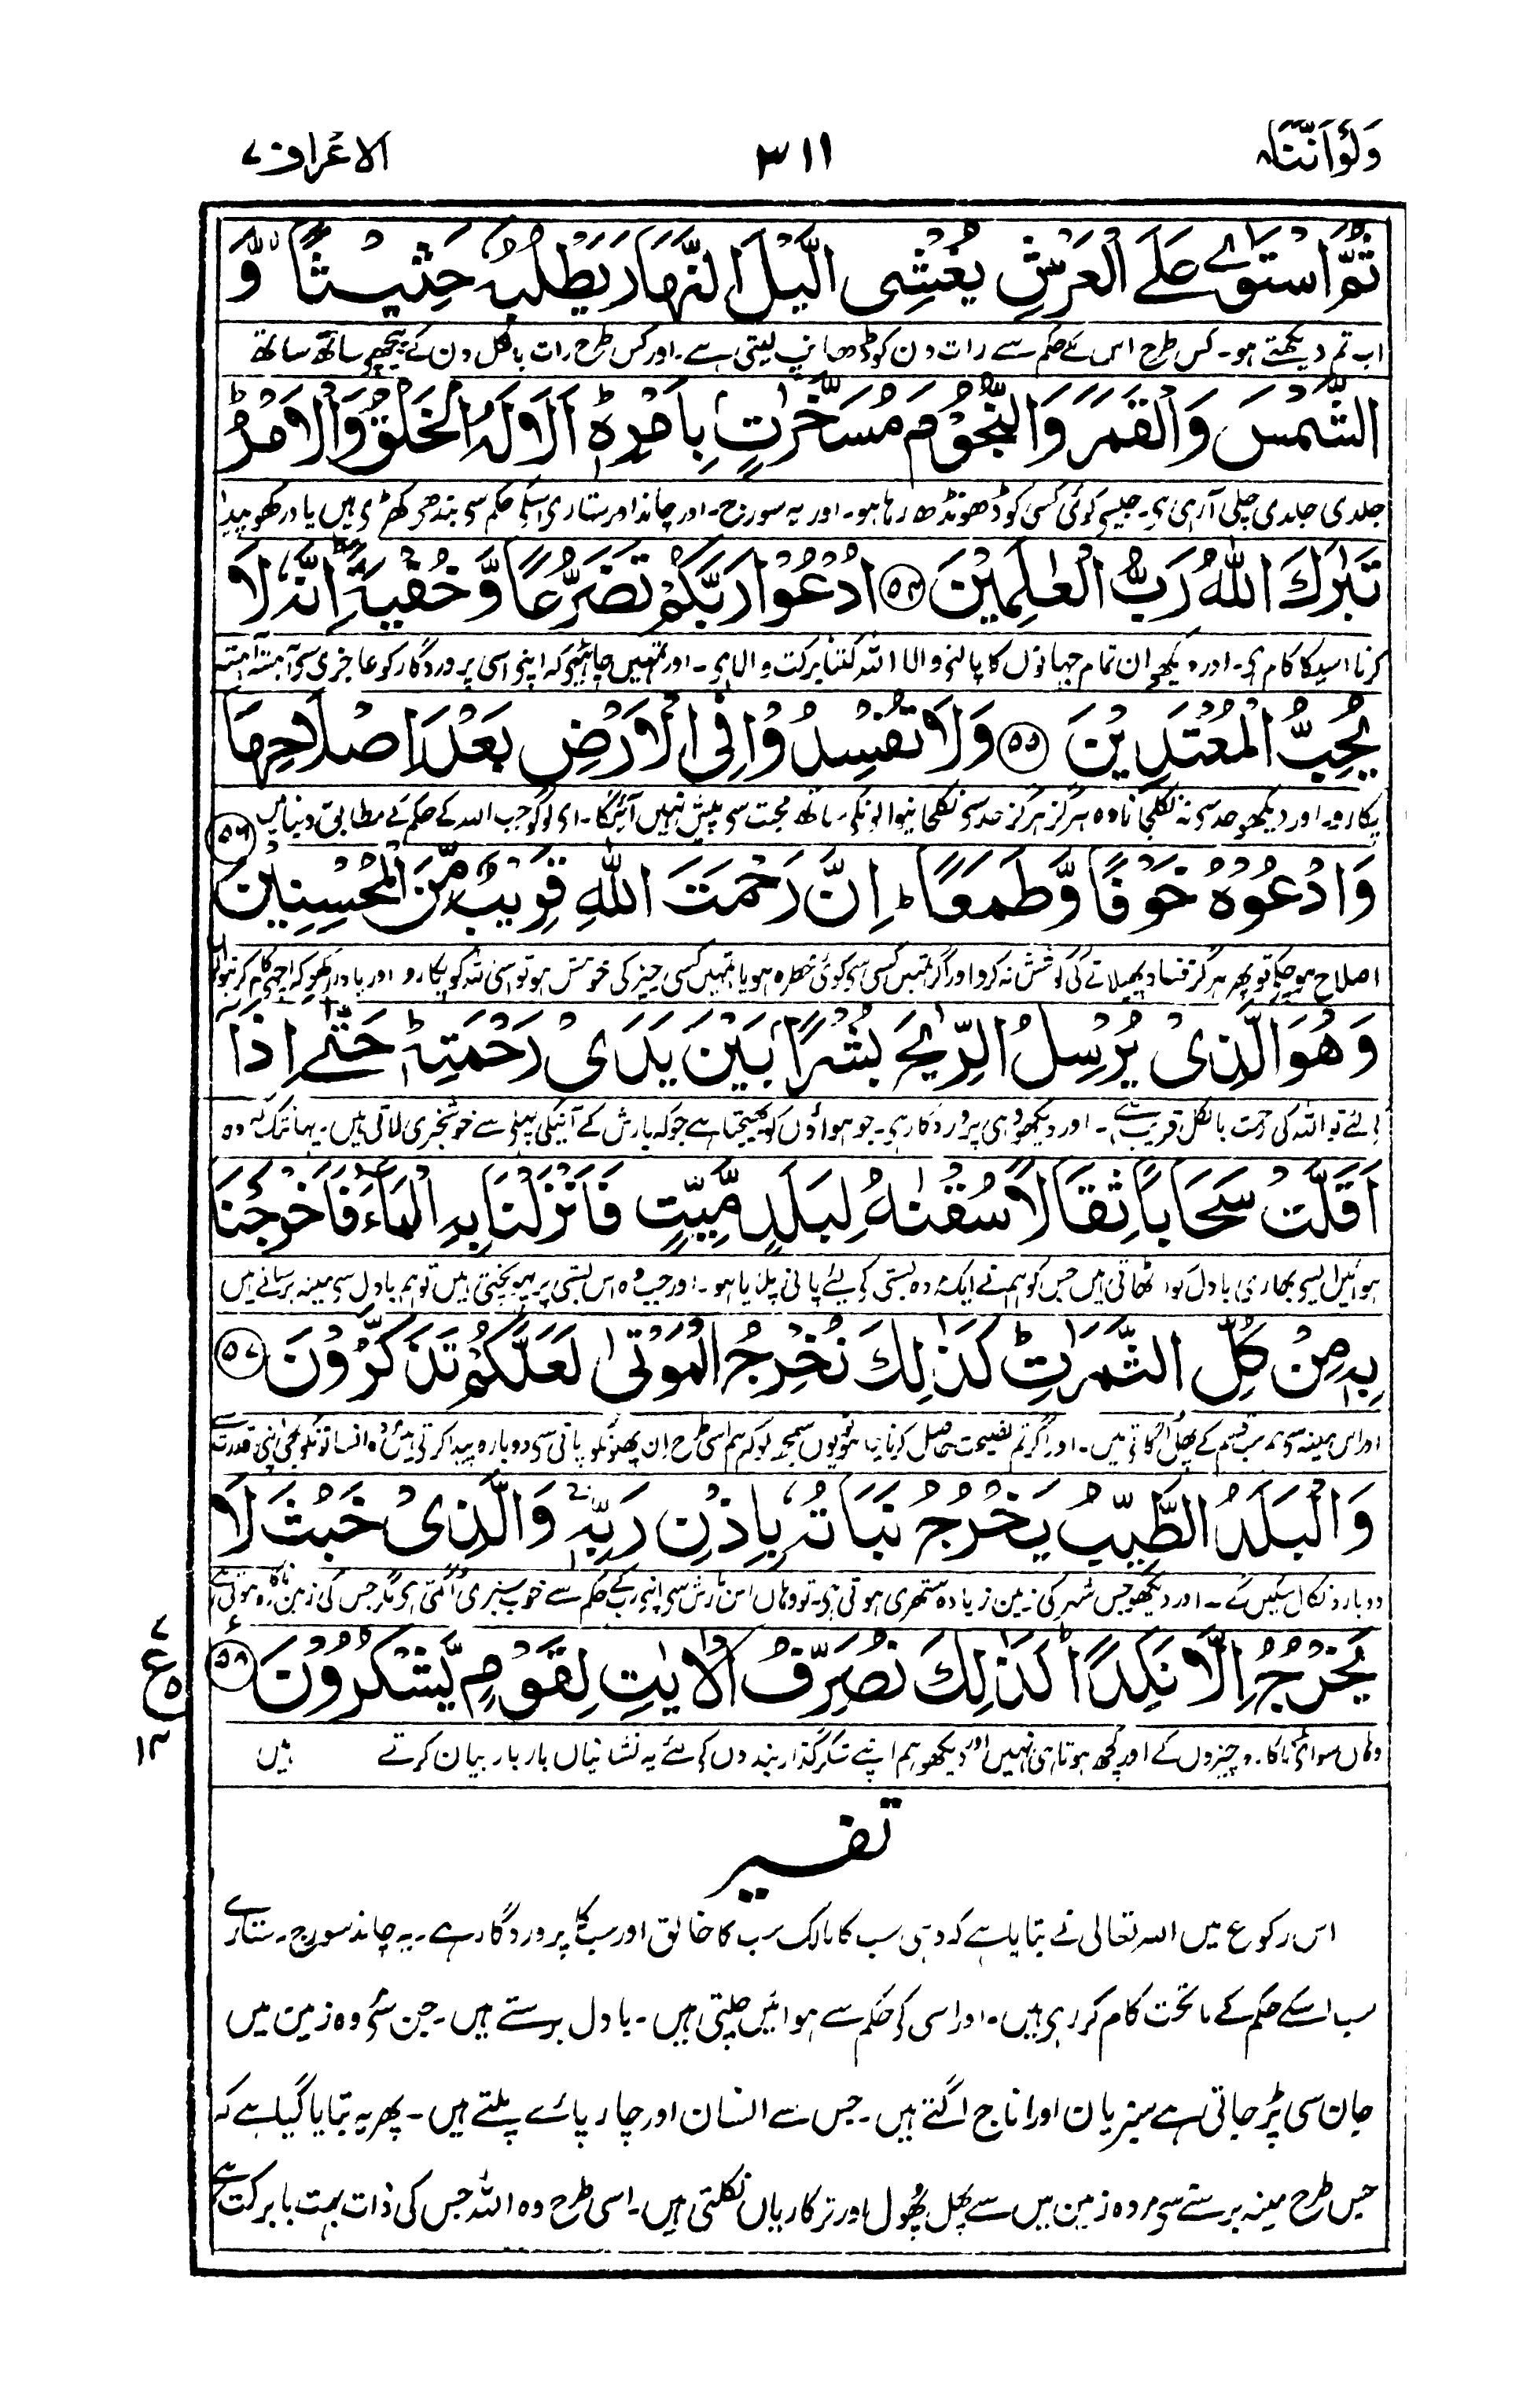 وَلَوْاَنَّنَا ۸ ۳۱۱ الاعراف ۷
ثُمَّ اسْتَوٰے عَلَے الْعَرْشِ یُغْشِی الَّیْلَ النَّهَارَ یَطْلُبُهٗ حَثِیْثًا ۙ وَّ
اب تم دیکھتے ہو۔ کس طرح اس کے حکم سے رات دن کو ڈھانپ لیتی ہے۔ اور کس طرح رات بالکل دن کے پیچھے ساتھ ساتھ
الشَّمْسَ وَالْقَمَرَ وَالنُّجُوْمَ مُسَخَّرٰتٍۭ بِاَمْرِهٖ ؕ اَلَا لَهُ الْخَلْقُ وَالْاَمْرُ ؕ
جلدی جلدی چلی آرہی ہی۔ جیسے کوئی کسی کو ڈھونڈھ رہا ہو۔ اور یہ سورج۔ اور چاند اور ستاری اسکے حکم سی بندھی کھڑی ہیں یاد رکھو پیدا
تَبٰرَكَ اللّٰهُ رَبُّ الْعٰلَمِیْنَ ۵۴ اُدْعُوْا رَبَّكُمْ تَضَرُّعًا وَّ خُفْیَةً ؕ اِنَّهٗ لَا
کرنا اسیکا کام ہی۔ اور دیکھو ان تمام جہانوں کا پالنے والا اللہ کتنا برکت والا ہی۔ اور تمہیں چاہیٔے کہ اپنی اسی پروردگار کو عاجزی سی آہستہ آہستہ
یُحِبُّ الْمُعْتَدِیْنَ ۵۵ وَلَا تُفْسِدُوْا فِی الْاَرْضِ بَعْدَ اِصْلَاحِهَا
پکارو۔ اور دیکھو حد سی نہ نکلجانا وہ ہرگز ہرگز حد سی نکلجانیوالونکے ساتھ محبت سی پیش نہیں آئیگا۔ ای لوگو جب اللہ کے حکم کے مطابق دنیا میں
وَادْعُوْهُ خَوْفًا وَّطَمَعًا ؕ اِنَّ رَحْمَتَ اللّٰهِ قَرِیْبٌ مِّنَ الْمُحْسِنِیْنَ ۵۶
اصلاح ہو چکے تو پھر ہرگز فساد پھیلانے کی کوشش نہ کرو اور اگر تمہیں کسی سی کوئی خطرہ ہو یا تمہیں کسی چیز کی خواہش ہو تو اسی اللہ کو پکارو اور یاد رکھو کہ اچھی کام کرنیوالوں
وَهُوَ الَّذِیْ یُرْسِلُ الرِّیٰحَ بُشْرًۢا بَیْنَ یَدَیْ رَحْمَتِهٖ ؕ حَتّٰے اِذَا
کے لئے تو اللہ کی رحمت بالکل قریب ہے۔ اور دیکھو وہی پروردگار ہی۔ جو ہواؤں کو بھیجتا ہے جو کہ بارش کے آنیکی پہلے سے خوشخبری لاتی ہیں۔ یہانتک کہ وہ
اَقَلَّتْ سَحَابًا ثِقَالًا سُقْنٰهُ لِبَلَدٍ مَّیِّتٍ فَاَنْزَلْنَا بِهِ الْمَآءَ فَاَخْرَجْنَا
ہوائیں ایسے بھاری بادل کو اٹھاتی ہیں جس کو ہم نے ایک مردہ بستی کے لئے پانی پلانا ہو۔ اور جب وہ اس بستی پر پہونچتی ہیں تو ہم بادل سی مینہ برساتے ہیں
بِهٖ مِنْ كُلِّ الثَّمَرٰتِ ؕ كَذٰلِكَ نُخْرِجُ الْمَوْتٰی لَعَلَّكُمْ تَذَكَّرُوْنَ ۵۷
اور اس مینہ سی ہم ہر قسم کے پھل اگاتی ہیں۔ اور اگر تم نصیحت حاصل کرنا چاہو تو یوں سمجھ لو کہ ہم اسی طرح ان پھلونکو پانی سی دوبارہ پیدا کرتی ہیں انسانونکو بھی اپنی قدرت سے
وَالْبَلَدُ الطَّیِّبُ یَخْرُجُ نَبَاتُهٗ بِاِذْنِ رَبِّهٖ ۚ وَالَّذِیْ خَبُثَ لَا
دوبارہ نکال سکیں گے۔ اور دیکھو جس شہر کی زمین زیادہ ستھری ہوتی ہی۔ تو وہاں اس بارش سی اپنی رب کے حکم سے خوب سبزی اگتی ہی مگر جس کی زمین ناکارہ ہوتی ہے
یَخْرُجُ اِلَّا نَكِدًا ؕ كَذٰلِكَ نُصَرِّفُ الْاٰیٰتِ لِقَوْمٍ یَّشْكُرُوْنَ ۵۸
ع ۷ ۵ ۱۴
وہاں سوائے ناکارہ چیزوں کے اور کچھ ہوتا ہی نہیں اور دیکھو ہم اپنے شکرگذار بندوں کے لئے یہ نشانیاں بار بار بیان کرتے ہیں
تفسیر
اس رکوع میں اللہ تعالی نے بتایا ہے کہ وہی سب کا مالک سب کا خالق اور سب کا پروردگار ہے۔ یہ چاند سورج۔ ستارے
سب اسکے حکم کے ماتحت کام کر رہی ہیں۔ اور اسی کے حکم سے ہوائیں چلتی ہیں۔ بادل برستے ہیں۔ جن سے وہ زمین میں
جان سی پڑ جاتی ہے سبزیان اور اناج اگتے ہیں۔ جس سے انسان اور چار پائے پلتے ہیں۔ پھر یہ بتایا گیا ہے کہ
جس طرح مینہ برسنے سے مردہ زمین میں سے پھل پھول اور ترکاریاں نکلتی ہیں۔ اسی طرح وہ اللہ جس کی ذات بہت بابرکت ہے